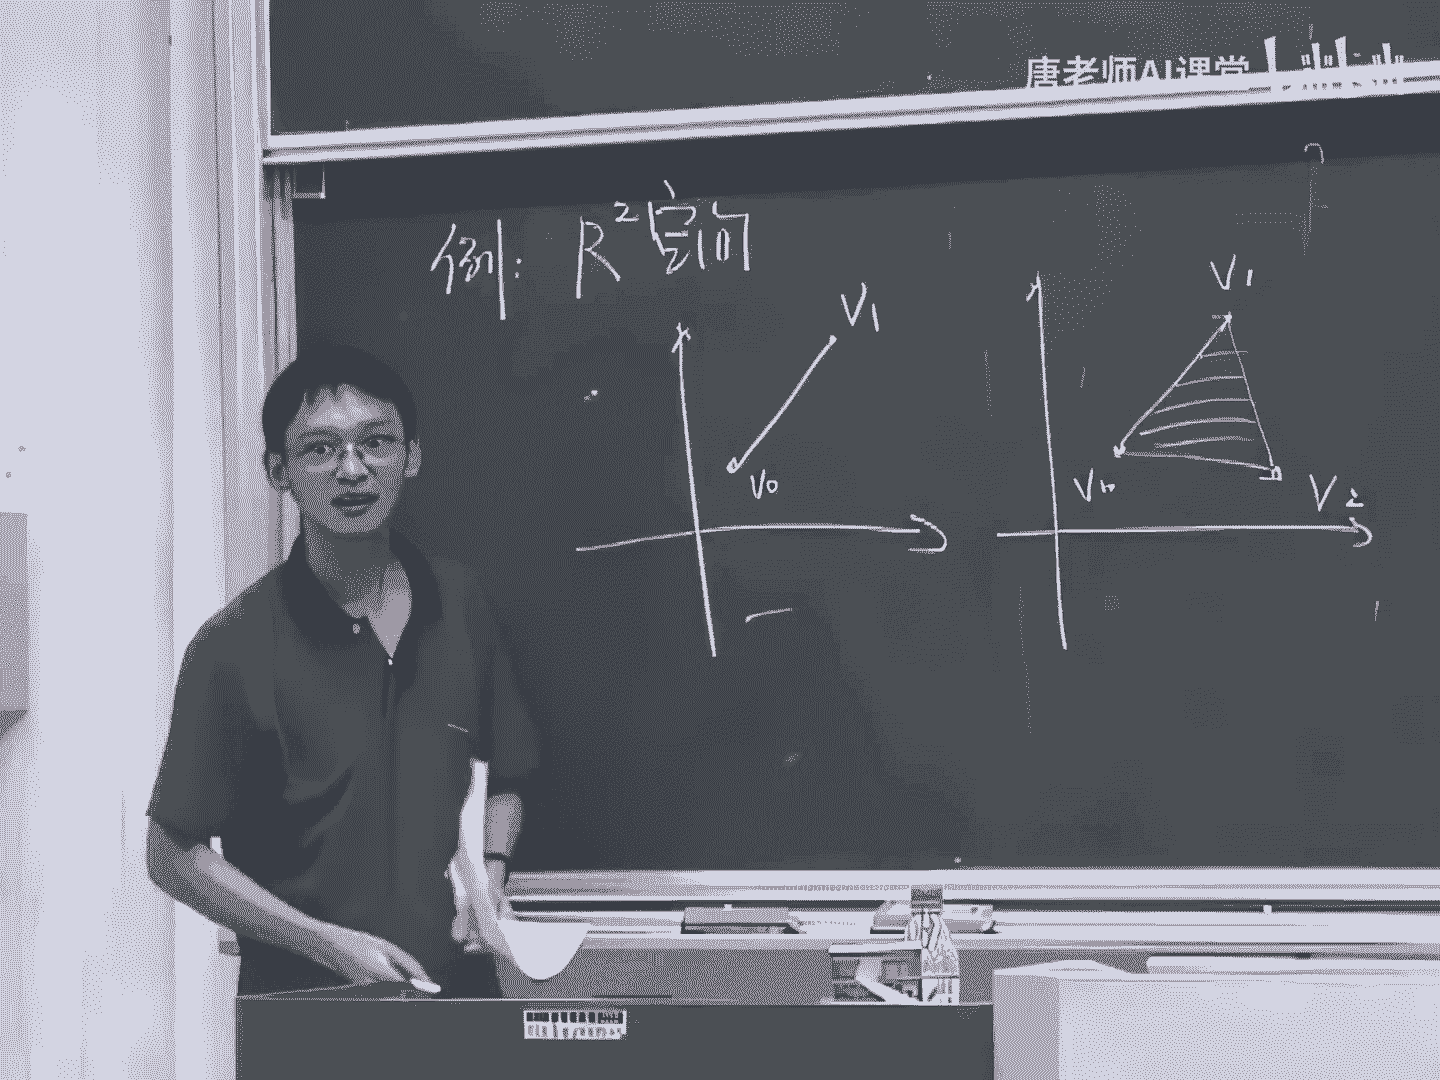 唐老师AI课堂
例: R² 空间
V₁
V₀
V₁
V₂